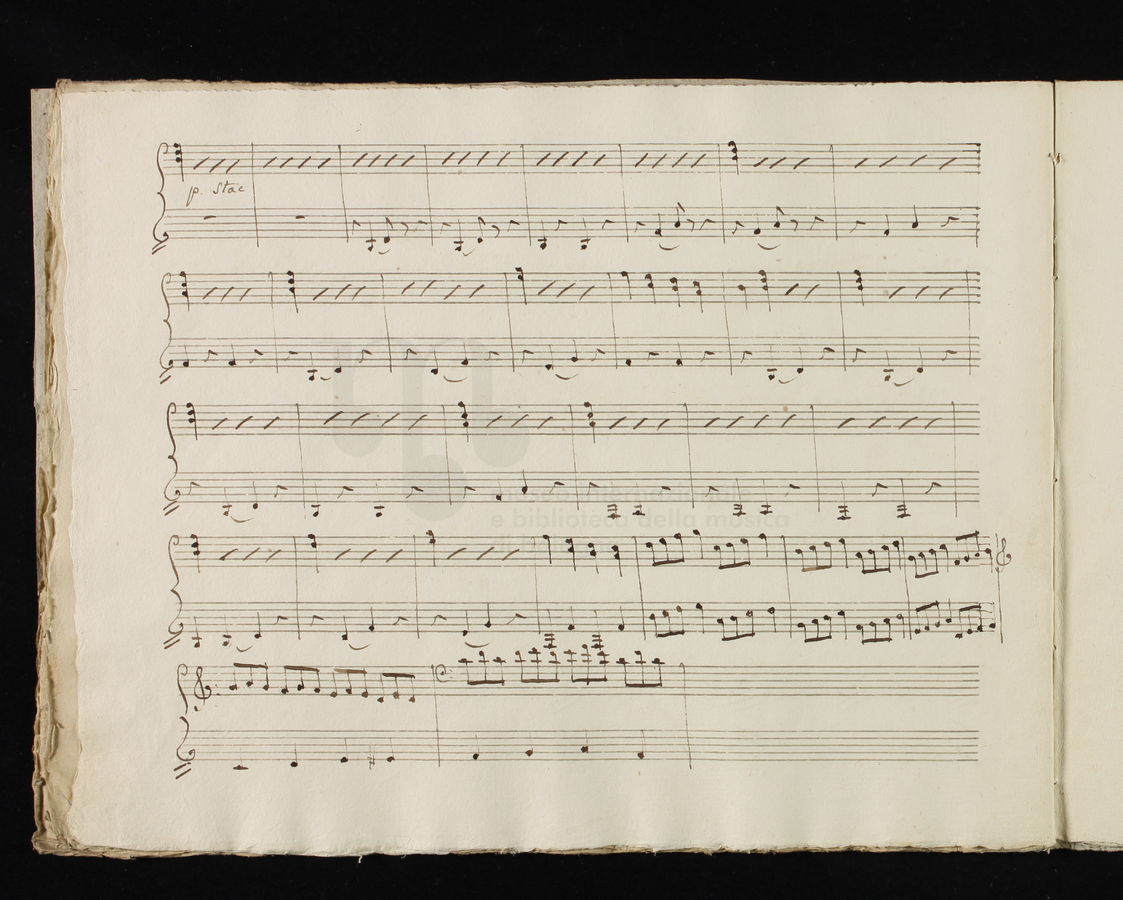 p. Stac
museo internazionale
e biblioteca della musica